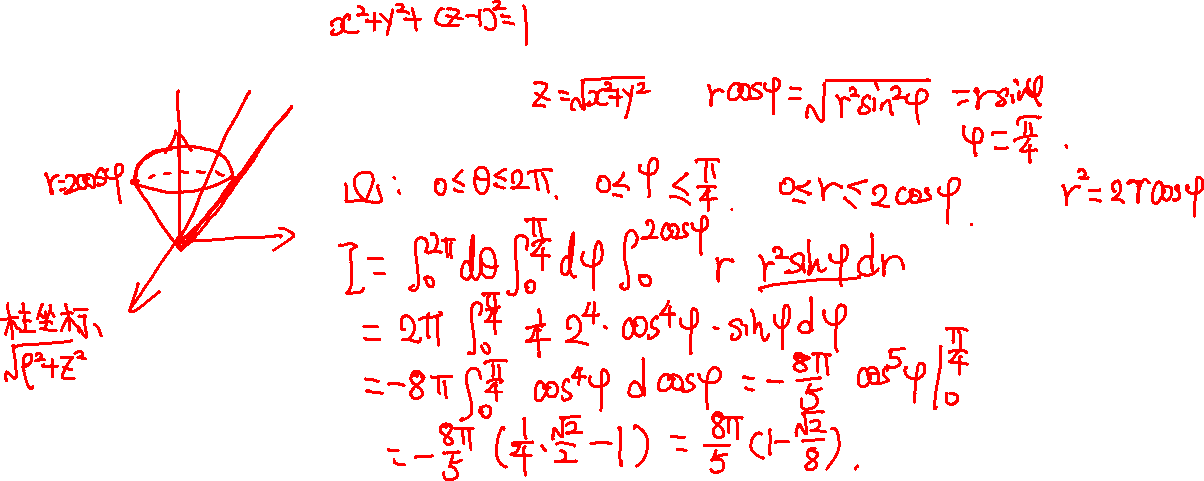 x²+y²+(z-1)²=1
z=√(x²+y²) rcosφ=√(r²sin²φ) =rsinφ
φ=π/4.
r=2cosφ
Ω: 0≤θ≤2π. 0≤φ≤π/4. 0≤r≤2cosφ. r²=2rcosφ
I=∫₀^{2π}dθ∫₀^{π/4}dφ∫₀^{2cosφ} r r²sinφdr
柱坐标、
√(ρ²+z²)
=2π∫₀^{π/4} 1/4 2⁴·cos⁴φ·sinφdφ
=-8π∫₀^{π/4} cos⁴φ d cosφ =-8π/5 cos⁵φ|₀^{π/4}
=-8π/5 (1/4·√2/2-1) = 8π/5 (1-√2/8).